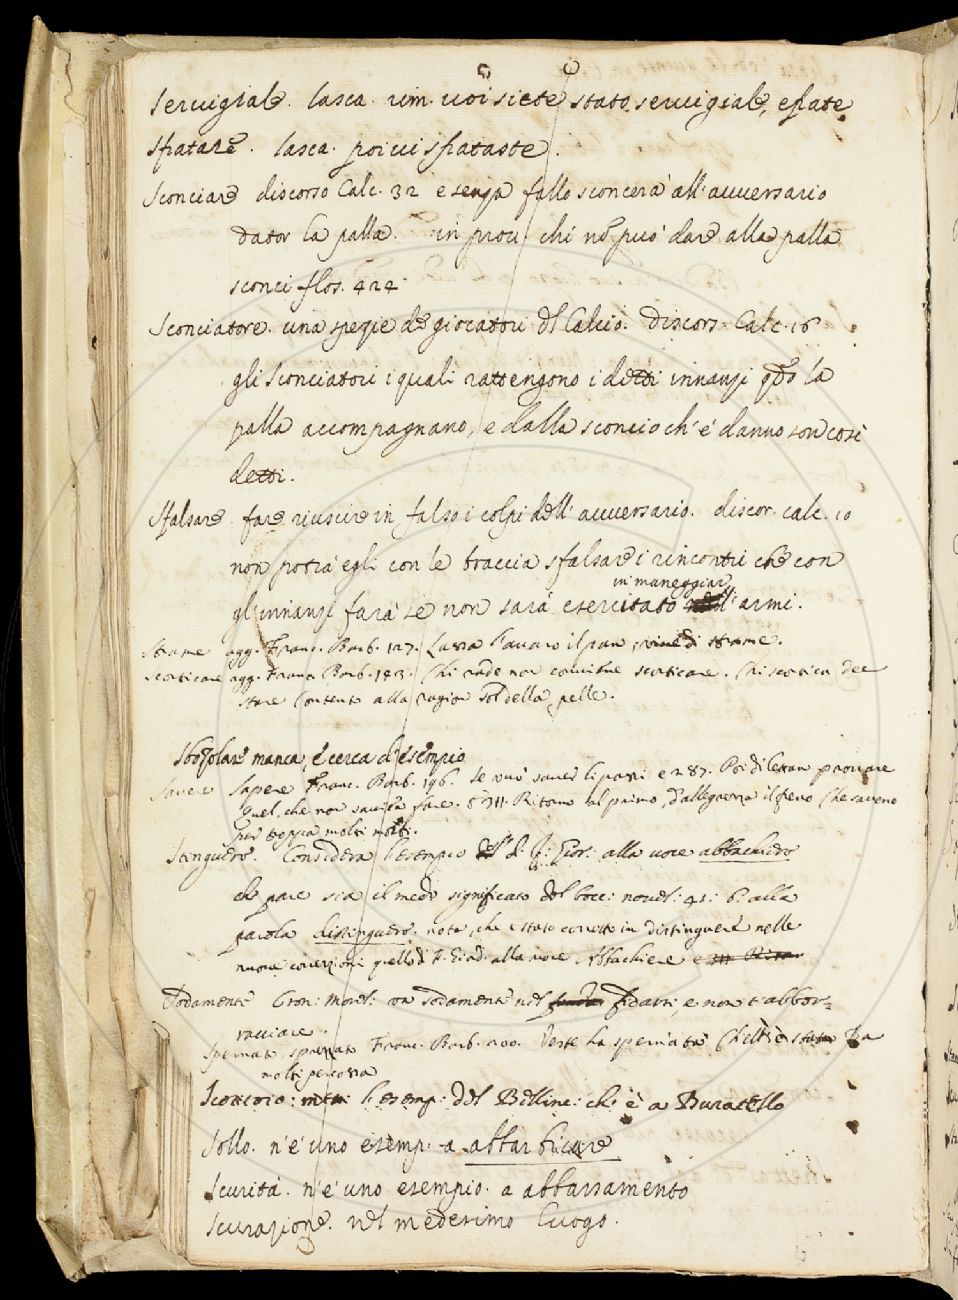 Servigiale. lasca. rim. voi siete stato servigiale, e frate
sfratare. lasca. poi vi sfrataste.
Sconciare discorso Calc. 32 e senza fallo sconcerà all'avversario
dator la palla. in prov. chi nõ può dare alla palla
sconci flos. 424.
Sconciatore. una spezie de giocatori dl Calcio. Discors. Calc. 16
gli Sconciatori i quali rattengono i detti innanzi qdo la
palla accompagnano, e dallo sconcio ch'è danno son così
detti.
Sfalsare. fare riuscire in falso i colpi dell'avversario. discor. calc. 10
non potrà egli con le braccia sfalsare i rincontri che con
in maneggiar
gl'innanzi farà se non sarà esercitato l'armi.
Strame agg. Franc. Barb. 127. Lassa l'avaro il pan, strame.
scorticare agg. Franc. Barb. 183. Chi rade non convien scorticare. Chi scortica dee
stare contento alla ragion sol della pelle.
Sbozzolare manca, e cerca d'esempio
Savere Sapere Franc. Barb. 196. Se vuo' saver li passi e 287. Poi di lettera provare
Quel, che non savesse fare. Ritorno al primo, d'allegrezza il freno Che saveno
per troppa molti morti.
Stinguere. Considera l'esempio dl S. Gior: alla voce abbachiere
che pare sia il medo significato dol bocc: novel: 41: 6: alla
parola distinguere. nota, che è stato corretto in distinguere nelle
nuove correzioni quello di alla voce Abbachiere e
Sodamente Cron: Morel: va sodamente nel fidarti, e non t'abbor-
racciare.
Spernato, sprezzato Franc. Barb. 200. Veste ha spernata Che l'è stata da
molti percossa
Sconcio: l'esemp: dl Bellinc: ch'è a Buratello
Sollo. n'è uno esemp: a abbarbicare
Scurità. n'è uno esempio. a abbassamento
Scurazione. nel medesimo luogo.